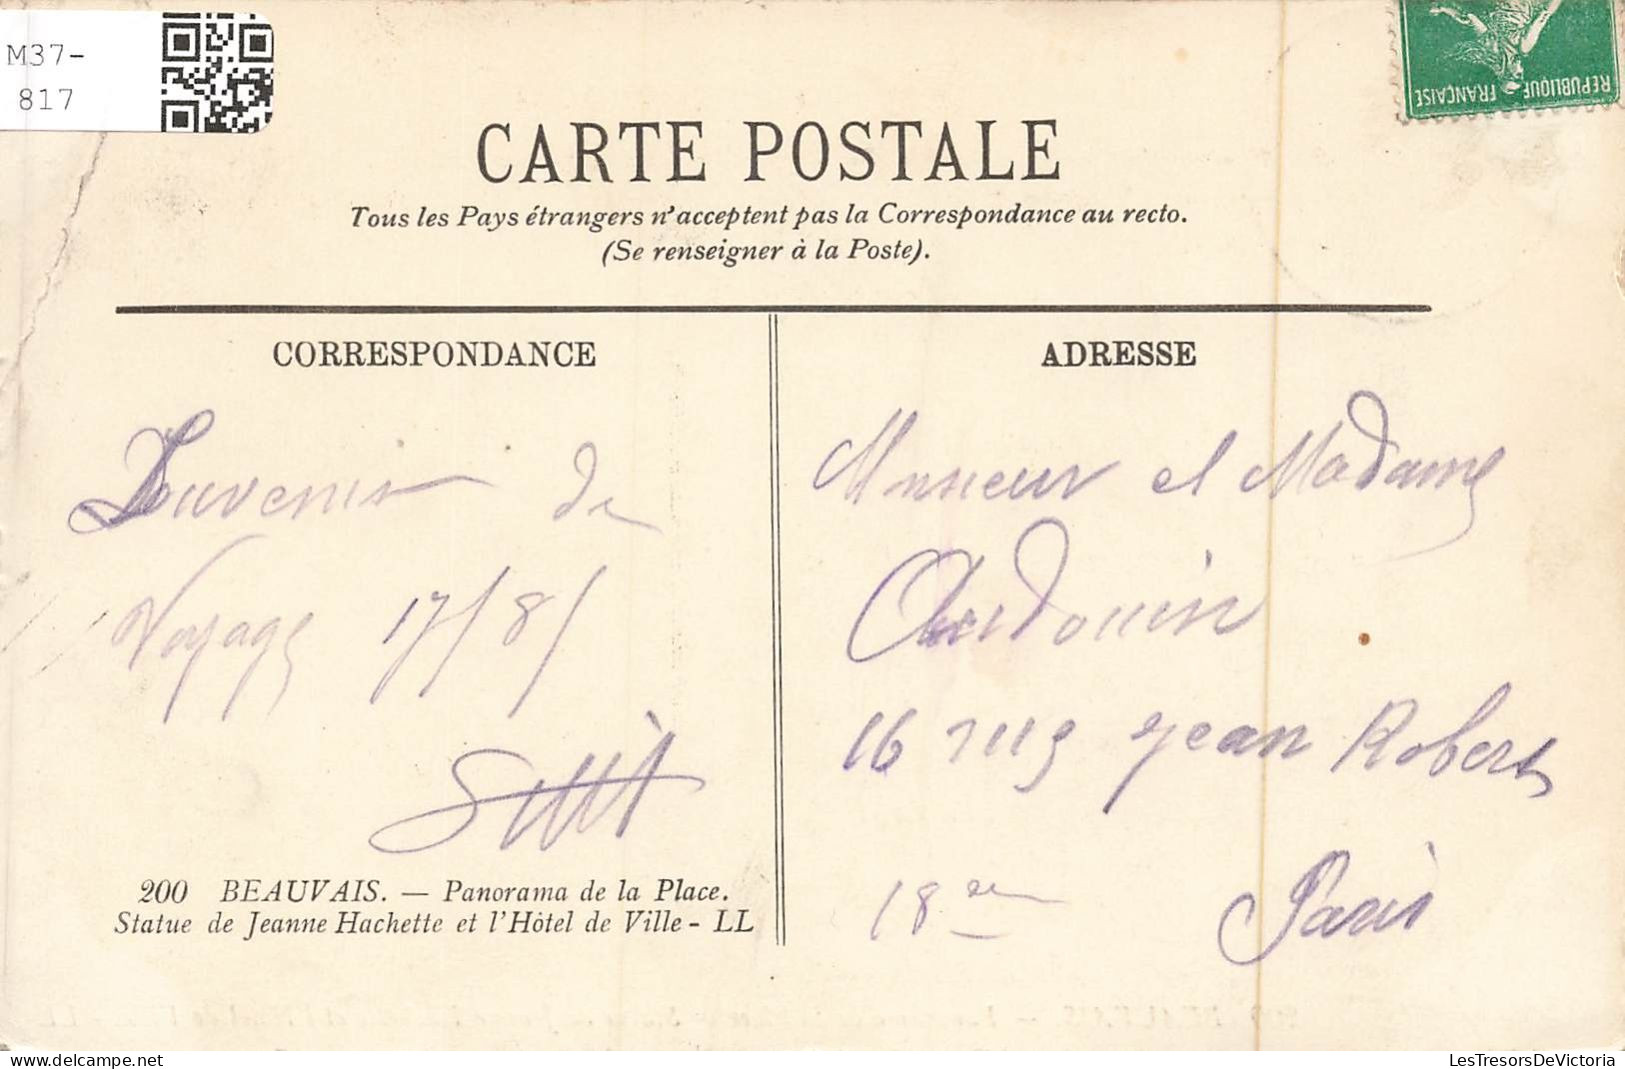 M37-
817
REPUBLIQUE FRANÇAISE
CARTE POSTALE
Tous les Pays étrangers n'acceptent pas la Correspondance au recto.
(Se renseigner à la Poste).
CORRESPONDANCE
Souvenir de
Voyage 17/8/
200 BEAUVAIS. — Panorama de la Place.
Statue de Jeanne Hachette et l'Hôtel de Ville - LL
ADRESSE
Monsieur et Madame
Audouin
16 rue Jean Robert
18 eme Paris
LesTresorsDeVictoria